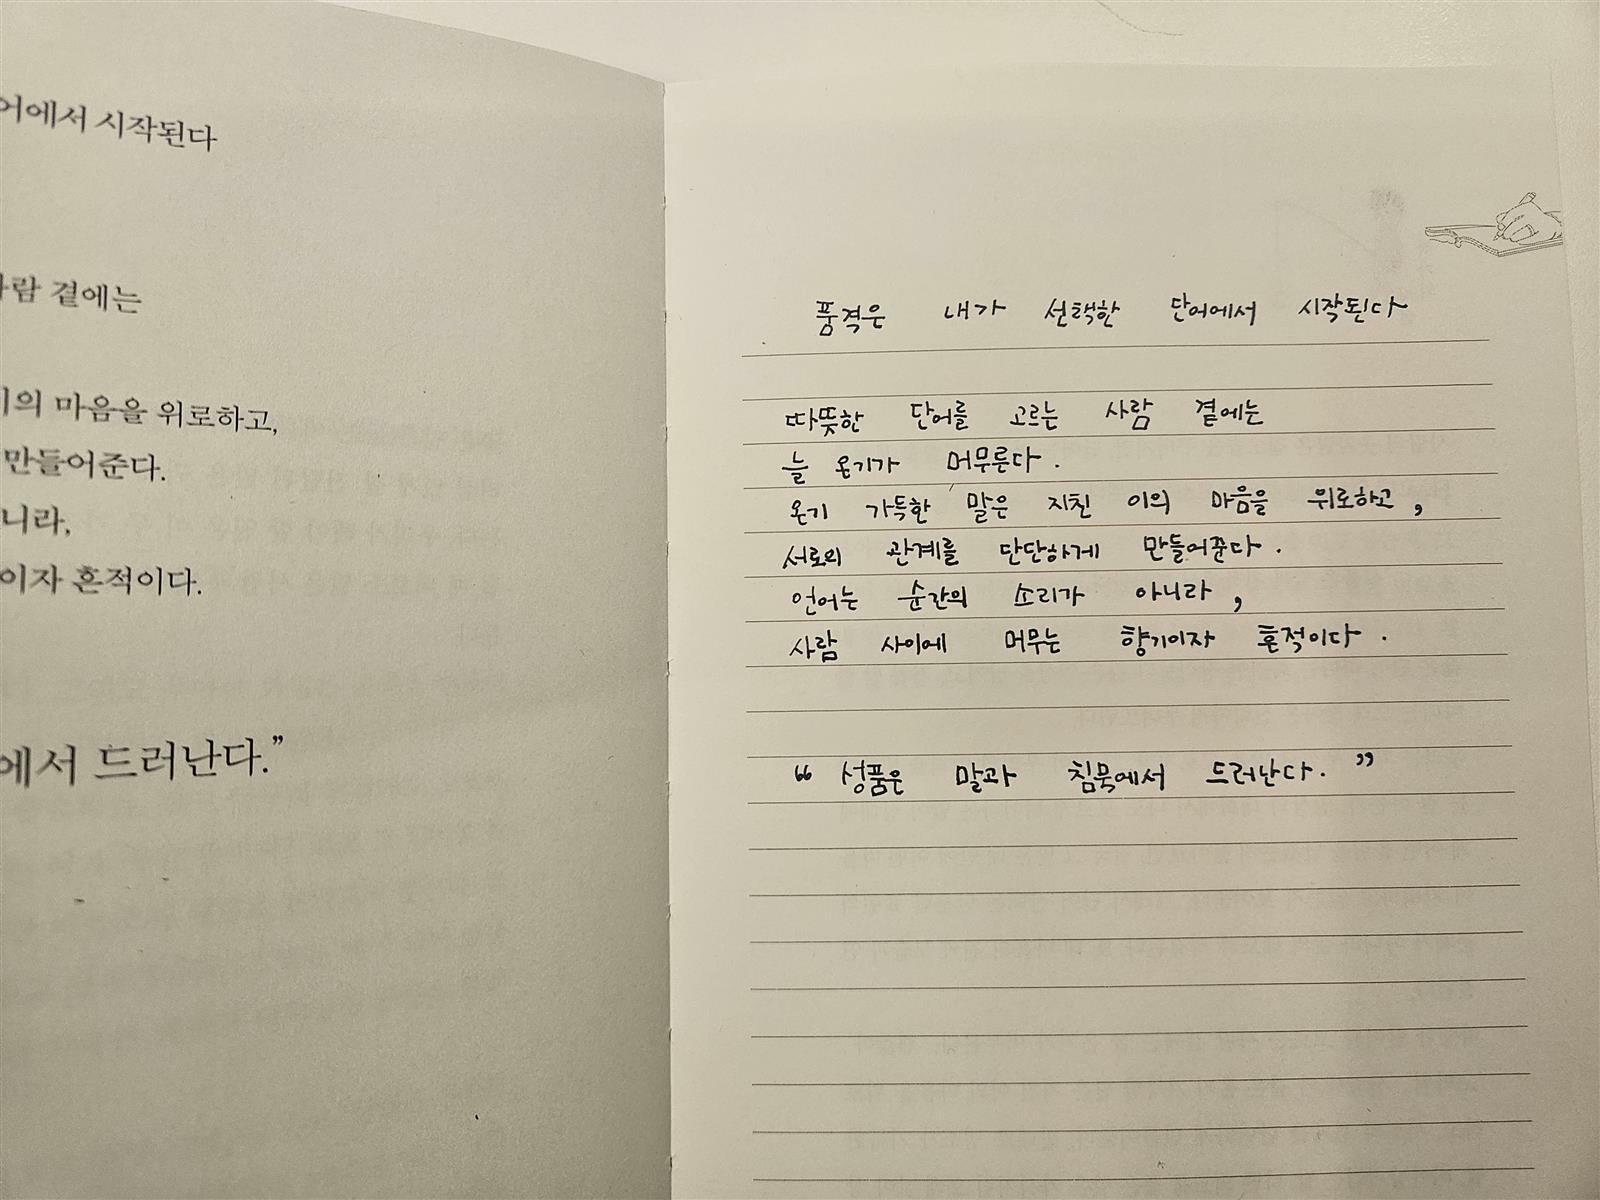 어에서 시작된다
사람 곁에는
이의 마음을 위로하고,
만들어준다.
니라,
이자 흔적이다.
에서 드러난다."
풍격은 내가 선택한 단어에서 시작된다
따뜻한 단어를 고르는 사람 곁에는
늘 온기가 머무른다.
온기 가득한 말은 지친 이의 마음을 위로하고,
서로의 관계를 단단하게 만들어준다.
언어는 순간의 소리가 아니라,
사람 사이에 머무는 향기이자 흔적이다.
“성품은 말과 침묵에서 드러난다.”